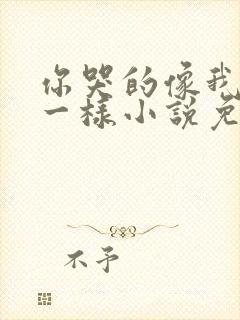 你哭的像我
一樣小說免
不予